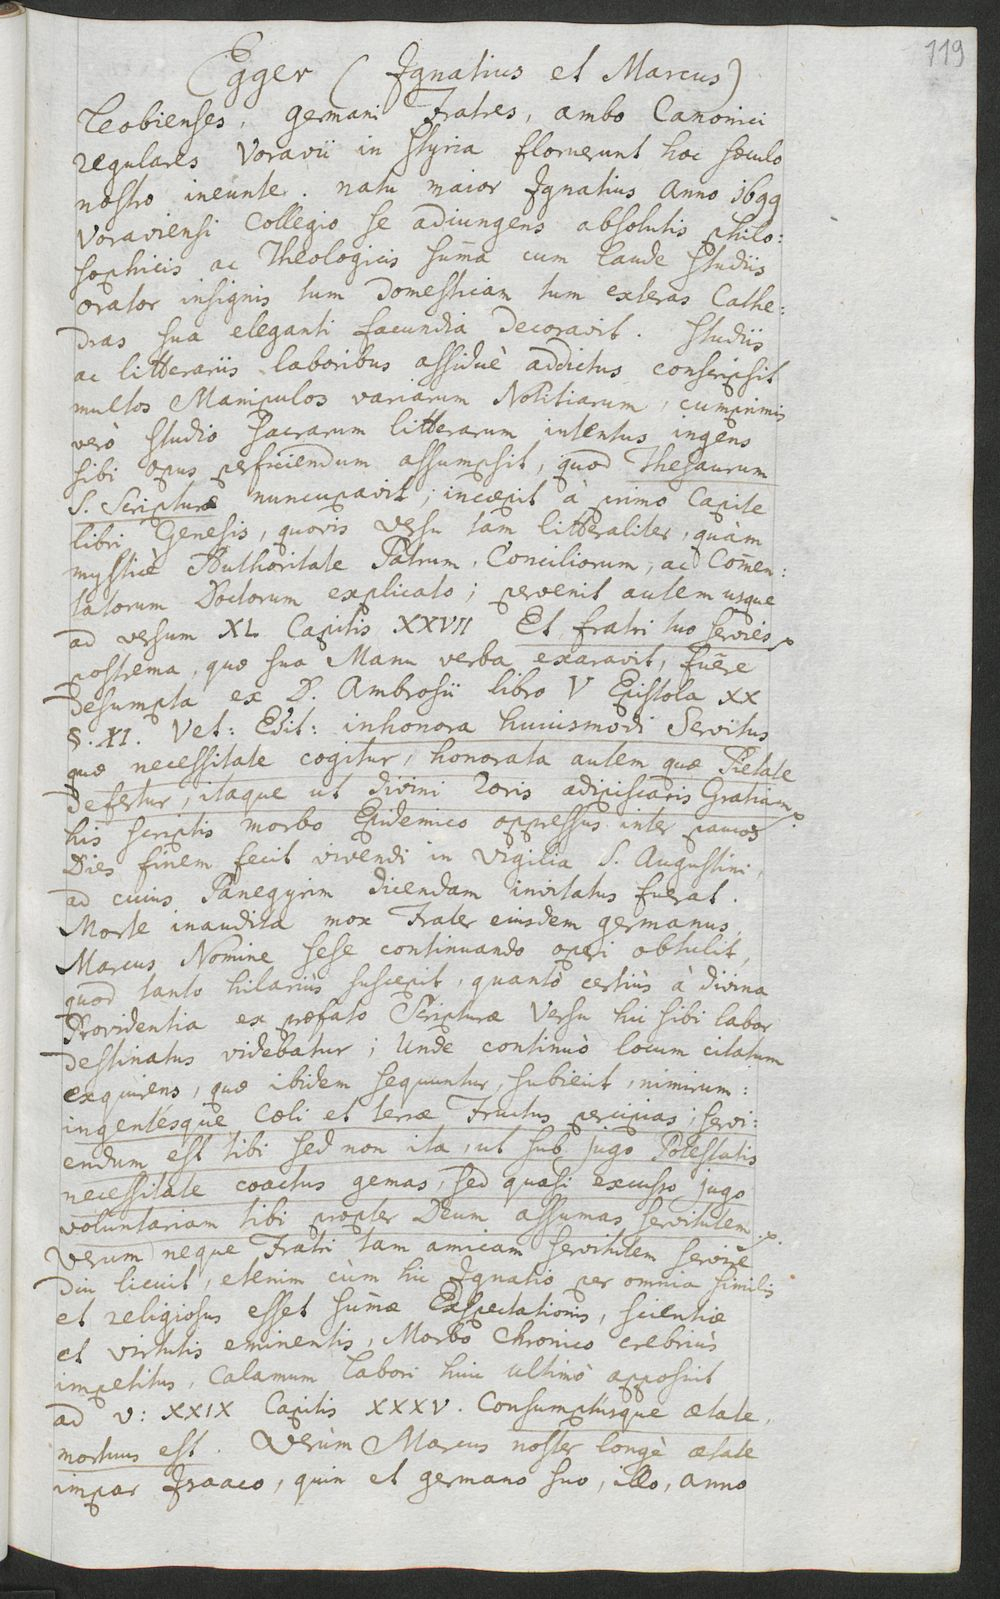 119
Egger (Ignatius et Marcus)
Leobienses, germani Fratres, ambo Canonici
regulares Voravii in Styria floruerunt hoc sæculo
nostro ineunte. natu maior Ignatius Anno 1699
Voraviensi Collegio se adiungens absolutis philo:
sophicis ac Theologicis sum̄a cum laude studiis
orator insignis tum Domesticam tum exteras Cathe:
dras sua eleganti facundia decoravit. Studiis
ac litterariis laboribus assiduè addictus conscripsit
multos Manipulos variarum Notitiarum, cumprimis
verò studio Sacrarum litterarum intentus ingens
sibi opus perficiendum assumpsit, quod Thesaurum
S. Scripturæ nuncupavit; incœpit à primo Capite
libri Genesis, quovis versu tam litteraliter, quàm
mysticè Authoritate Patrum, Conciliorum, ac Com̄en:
tatorum Doctorum explicato; pervenit autem usque
ad versum XL Capitis XXVII Et fratri tuo servies
postrema, quæ sua Manu verba exaravit, fuêre
desumpta ex D. Ambrosii libro V Epistola XX
§. XI. Vet: Edit: inhonora huiusmodi Servitus
quæ necessitate cogitur, honorata autem quæ Pietate
defertur, itaque ut divini Roris adipiscaris Gratiam
his scriptis morbo Epidemico oppressus inter paucos
Dies finem fecit vivendi in vigilia S. Augustini,
ad cuius Panegyrim dicendam invitatus fuerat.
Morte inaudita mox Frater eiusdem germanus,
Marcus Nomine sese continuando operi obtulit,
quod tanto hilariùs suscepit, quantò certiùs à divina
Providentia ex præfato Scripturæ Versu hic sibi labor
destinatus videbatur; Unde continuò locum citatum
exquirens, quæ ibidem sequuntur, subiecit, nimirum:
ingentésque Cœli et terræ Fructus percipias; servi:
endum est tibi sed non ita, ut sub jugo Potestatis
necessitate coactus gemas, sed quasi excusso jugo
voluntariam tibi propter Deum assumas servitutem
Verum neque Fratri tam amicam servitutem servire
diu licuit, etenim cùm hic Ignatio per omnia similis
et religiosus esset sum̄æ Exspectationis, scientiæ
et virtutis eminentis, Morbo Chronico crebriùs
impetitus, Calamum labori huic ultimò apposuit
ad v: XXIX Capitis XXXV. Consumptusque ætate,
mortuus est. Verùm Marcus noster longè ætate
impar Isaaco, quin et germano suo, illo, anno